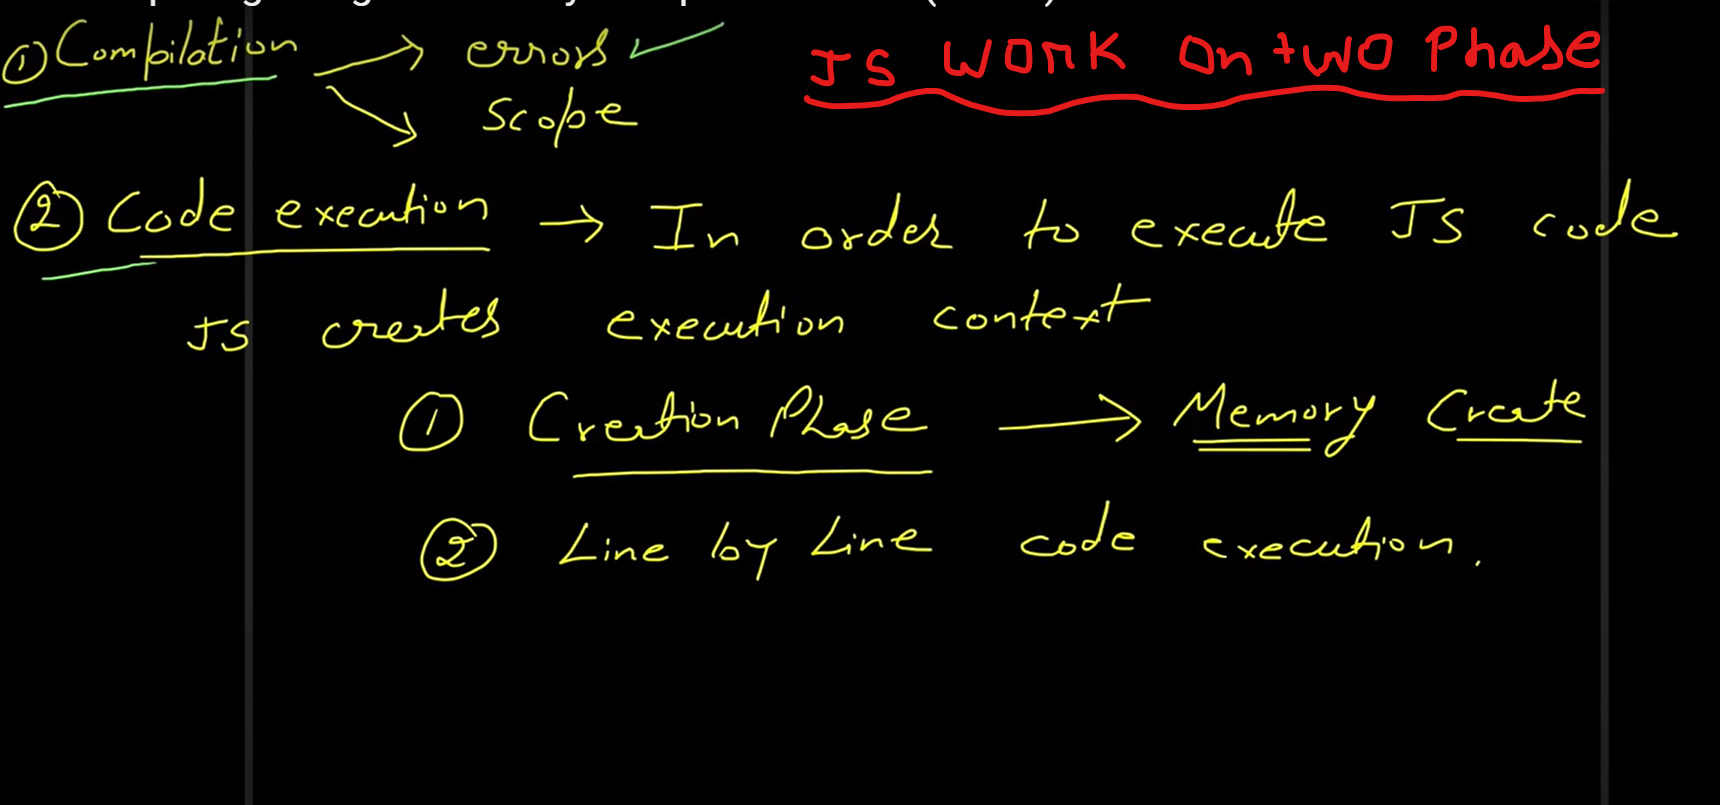 ① Compilation → errors ✓
→ scope
JS WORK On tWO Phase
② Code execution → In order to execute JS code
JS creates execution context
① Creation Phase → Memory Create
② Line by Line code execution.